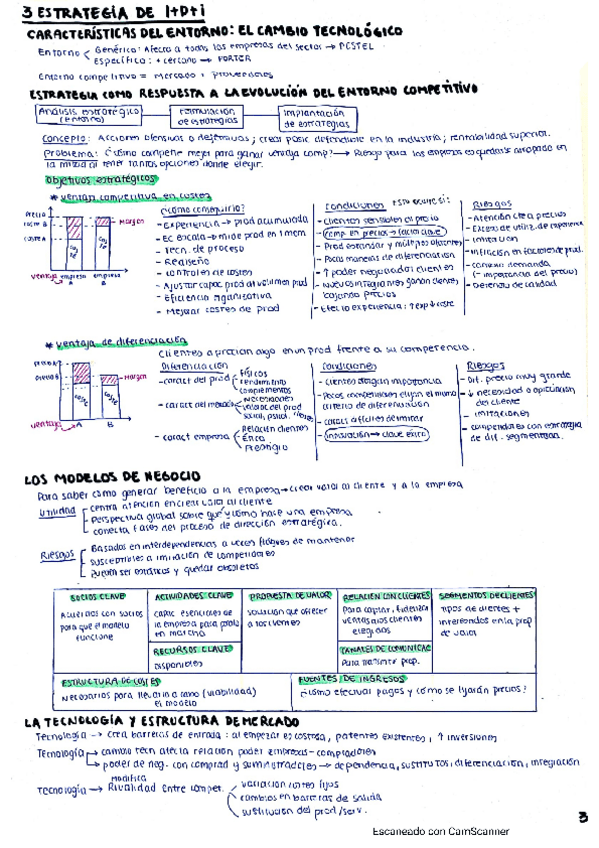 3 ESTRATEGIA DE I+D+i
CARACTERÍSTICAS DEL ENTORNO: EL CAMBIO TECNOLÓGICO
Entorno
Genérico: Afecta a todas las empresas del sector → PESTEL
Específica: + cercano → PORTER
Entorno competitivo = mercado + proveedores
ESTRATEGIA COMO RESPUESTA A LA EVOLUCIÓN DEL ENTORNO COMPETITIVO
Análisis estratégico (entorno)
Formulación de estrategias
Implantación de estrategias
Concepto: Acciones ofensivas o defensivas; crear posic. defendible en la industria; rentabilidad superior.
Problema: ¿Cómo competir mejor para ganar ventaja comp? → Riesgo para las empresas es quedarse atrapado en
la mitad al tener tantas opciones donde elegir.
Objetivos estratégicos
* Ventaja competitiva en costes
precio
coste B
coste A
coste
coste
Margen
ventaja
empresa A
empresa B
¿Cómo conseguirlo?
- Experiencia → prod acumulada
- Ec escala → mide prod en 1 mem
- Tecn. de proceso
- Rediseño
- controles de costes
- Ajustar capac prod al volumen prod
- Eficiencia organizativa
- Mejorar costes de prod
Condiciones esto ocurre si:
- Clientes sensibles al precio
- Comp. en precios → factor clave
- Prod estandar y múltiples opciones
- Pocas maneras de diferenciación
- ↑ poder negociador clientes
- Nuevos integrantes ganan clientes
bajando precios
- Efecto experiencia: ↑ exp ↓ coste
Riesgos
- Atención críea precios
- Exceso de utiliz. de experiencia
- Imitación
- Inflación en factores de prod.
- Cambio demanda
(- importancia del precio)
- Defensa de calidad
* Ventaja de diferenciación
Clientes aprecian algo en un prod frente a su competencia.
precio A
precio B
coste
coste
Margen
ventaja
A
B
Diferenciación
- caract del prod
Físicos
rendimiento
complementos
- caract del mercado
Necesidades
valores del prod
social, psicol.
- caract empresa
Relación clientes
Ética
Prestigio
Condiciones
- clientes otorgan importancia
- Pocos competidores eligen el mismo
criterio de diferenciación
- caract difíciles de imitar
- Innovación → clave éxito
Riesgos
- Dif. precio muy grande
- ↓ necesidad o apreciación
del cliente
- imitaciones
- competidores con estrategia
de dif. segmentada.
LOS MODELOS DE NEGOCIO
Para saber cómo generar beneficio a la empresa → crear valor al cliente y a la empresa
Utilidad
centra atención en crear valor al cliente
Perspectiva global sobre qué y cómo hace una empresa
conecta fases del proceso de dirección estratégica.
Riesgos
Basados en interdependencias a veces frágiles de mantener
susceptibles a imitación de competidores
Pueden ser estáticos y quedar obsoletos
SOCIOS CLAVE
Acuerdos con socios
para que el modelo
funcione
ACTIVIDADES CLAVE
Capac esenciales de
la empresa para ponerlo
en marcha
RECURSOS CLAVE
disponibles
PROPUESTA DE VALOR
solución que ofrecer
a los clientes
RELACIÓN CON CLIENTES
Para captar, fidelizar
ventas a los clientes
elegidos
CANALES DE COMUNICAC
Para transmitir prop.
SEGMENTOS DE CLIENTES
Tipos de clientes +
interesados en la prop
de valor
ESTRUCTURA DE COSTES
Necesarios para llevarlo a cabo (viabilidad)
el modelo
FUENTES DE INGRESOS
¿Cómo efectuar pagos y cómo se fijarán precios?
LA TECNOLOGÍA Y ESTRUCTURA DE MERCADO
Tecnología → Crea barreras de entrada: al empezar es costosa, patentes existentes, ↑ inversiones
Tecnología
cambio tecn afecta relación poder empresas-compradores
poder de neg. con comprad y suministradores → dependencia, sustitutos, diferenciación, integración
modifica
Tecnología → Rivalidad entre compet.
variación costes fijos
cambios en barreras de salida
sustitución del prod/serv.
3
Escaneado con CamScanner